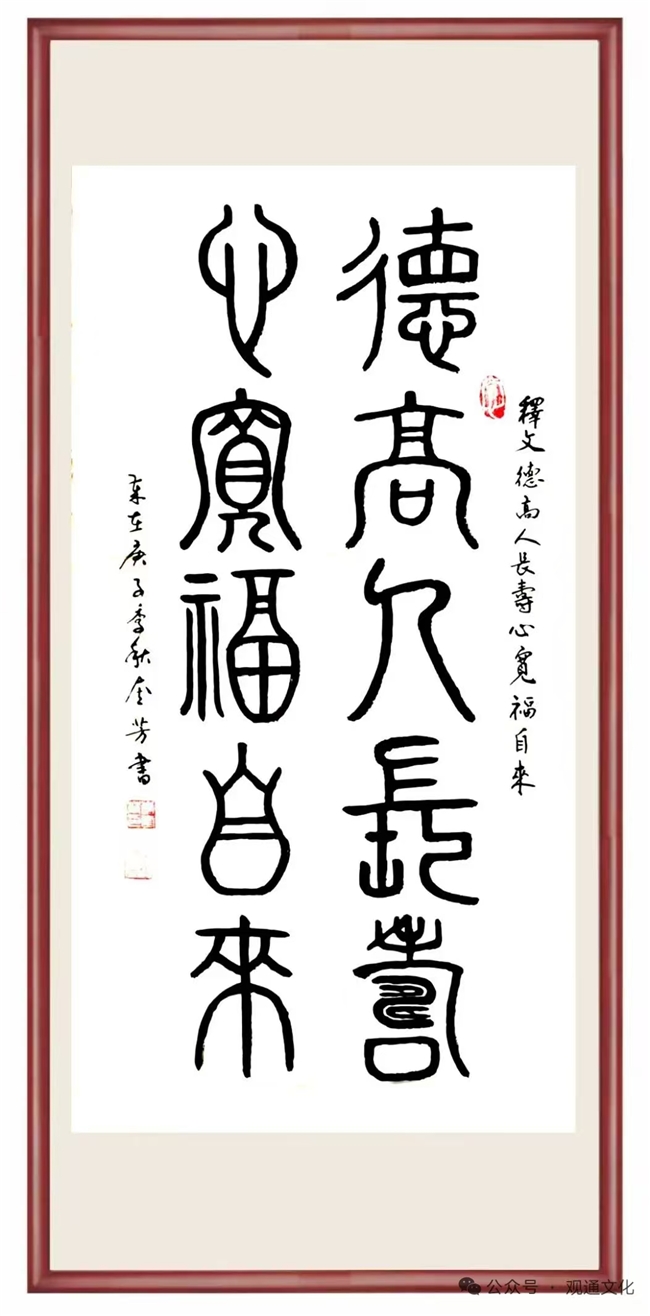 德高人長壽
心寬福自來
釋文德高人長壽心寬福自來
庚子季秋金芳書
公众号 · 观通文化